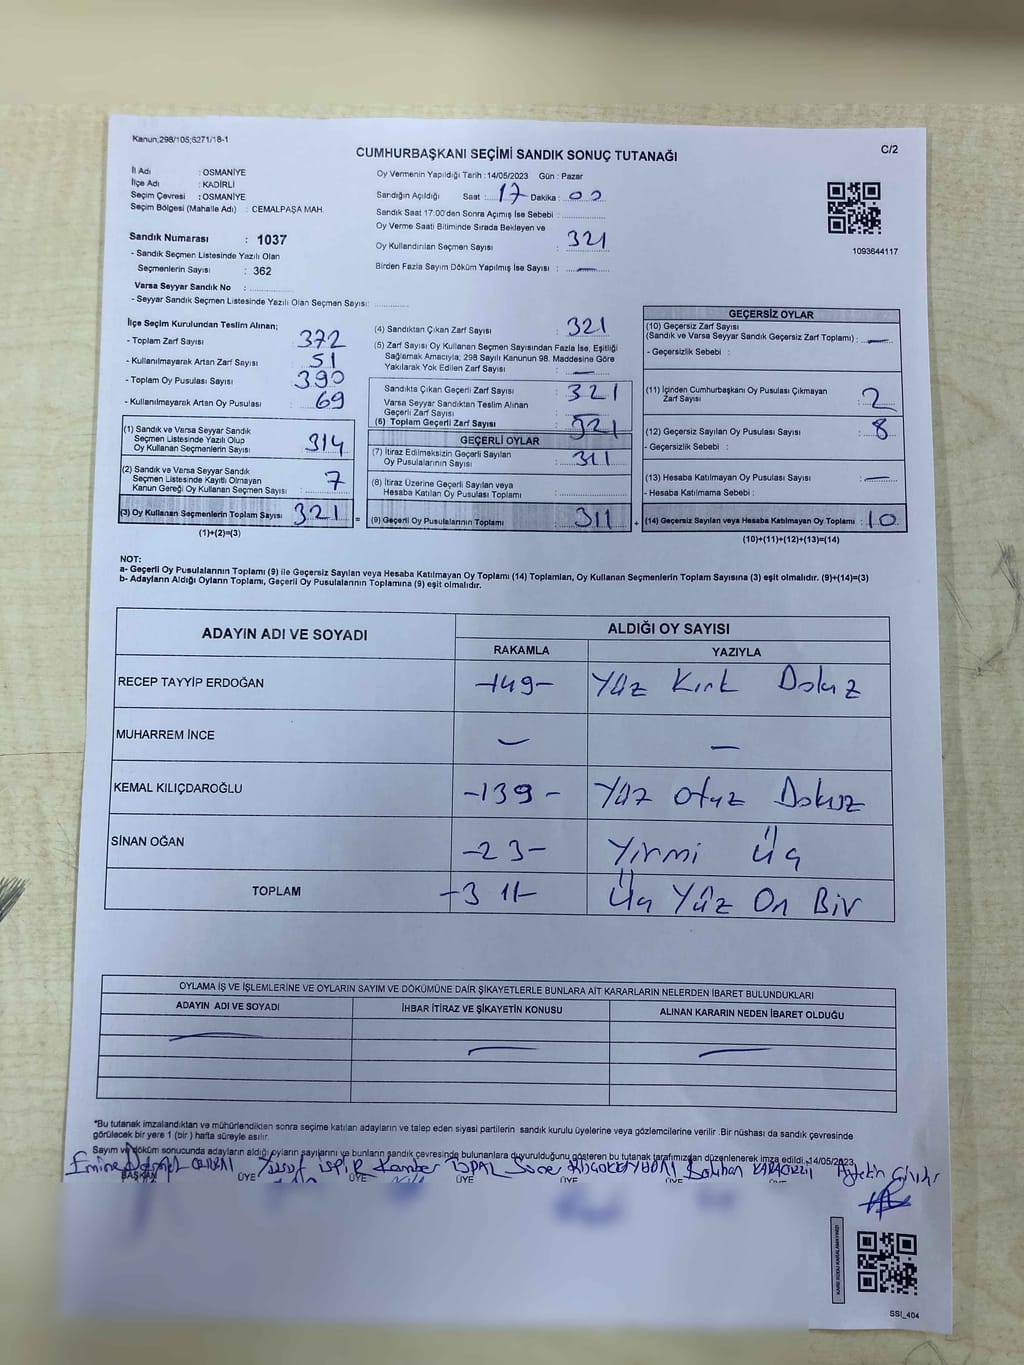 Kanun;298/105;6271/18-1
CUMHURBAŞKANI SEÇİMİ SANDIK SONUÇ TUTANAĞI
C/2
İl Adı : OSMANİYE
İlçe Adı : KADİRLİ
Seçim Çevresi : OSMANİYE
Seçim Bölgesi (Mahalle Adı) : CEMALPAŞA MAH.
Sandık Numarası : 1037
- Sandık Seçmen Listesinde Yazılı Olan
Seçmenlerin Sayısı : 362
Varsa Seyyar Sandık No :
- Seyyar Sandık Seçmen Listesinde Yazılı Olan Seçmen Sayısı:
Oy Vermenin Yapıldığı Tarih :14/05/2023 Gün : Pazar
Sandığın Açıldığı Saat : 17 Dakika : 00
Sandık Saat 17:00'den Sonra Açımış İse Sebebi :
Oy Verme Saati Bitiminde Sırada Bekleyen ve
Oy Kullandırılan Seçmen Sayısı : 321
Birden Fazla Sayım Döküm Yapılmış İse Sayısı : —
1093644117
İlçe Seçim Kurulundan Teslim Alınan;
- Toplam Zarf Sayısı : 372
- Kullanılmayarak Artan Zarf Sayısı : 51
- Toplam Oy Pusulası Sayısı : 390
- Kullanılmayarak Artan Oy Pusulası : 69
(1) Sandık ve Varsa Seyyar Sandık
Seçmen Listesinde Yazılı Olup
Oy Kullanan Seçmenlerin Sayısı : 314
(2) Sandık ve Varsa Seyyar Sandık
Seçmen Listesinde Kayıtlı Olmayan
Kanun Gereği Oy Kullanan Seçmen Sayısı : 7
(3) Oy Kullanan Seçmenlerin Toplam Sayısı : 321 =
(1)+(2)=(3)
(4) Sandıktan Çıkan Zarf Sayısı : 321
(5) Zarf Sayısı Oy Kullanan Seçmen Sayısından Fazla İse, Eşitliği
Sağlamak Amacıyla; 298 Sayılı Kanunun 98. Maddesine Göre
Yakılarak Yok Edilen Zarf Sayısı : —
Sandıkta Çıkan Geçerli Zarf Sayısı : 321
Varsa Seyyar Sandıktan Teslim Alınan
Geçerli Zarf Sayısı :
(6) Toplam Geçerli Zarf Sayısı : 321
GEÇERLİ OYLAR
(7) İtiraz Edilmeksizin Geçerli Sayılan
Oy Pusulalarının Sayısı : 311
(8) İtiraz Üzerine Geçerli Sayılan veya
Hesaba Katılan Oy Pusulası Toplamı :
(9) Geçerli Oy Pusulalarının Toplamı : 311 +
GEÇERSİZ OYLAR
(10) Geçersiz Zarf Sayısı
(Sandık ve Varsa Seyyar Sandık Geçersiz Zarf Toplamı) : —
- Geçersizlik Sebebi :
(11) İçinden Cumhurbaşkanı Oy Pusulası Çıkmayan
Zarf Sayısı : 2
(12) Geçersiz Sayılan Oy Pusulası Sayısı : 8
- Geçersizlik Sebebi :
(13) Hesaba Katılmayan Oy Pusulası Sayısı : —
- Hesaba Katılmama Sebebi :
(14) Geçersiz Sayılan veya Hesaba Katılmayan Oy Toplamı : 10
(10)+(11)+(12)+(13)=(14)
NOT:
a- Geçerli Oy Pusulalarının Toplamı (9) ile Geçersiz Sayılan veya Hesaba Katılmayan Oy Toplamı (14) Toplamları, Oy Kullanan Seçmenlerin Toplam Sayısına (3) eşit olmalıdır. (9)+(14)=(3)
b- Adayların Aldığı Oyların Toplamı, Geçerli Oy Pusulalarının Toplamına (9) eşit olmalıdır.
ADAYIN ADI VE SOYADI ALDIĞI OY SAYISI
RAKAMLA YAZIYLA
RECEP TAYYİP ERDOĞAN -149- Yüz Kırk Dokuz
MUHARREM İNCE — —
KEMAL KILIÇDAROĞLU -139- Yüz Otuz Dokuz
SİNAN OĞAN -23- Yirmi Üç
TOPLAM -311- Üç Yüz On Bir
OYLAMA İŞ VE İŞLEMLERİNE VE OYLARIN SAYIM VE DÖKÜMÜNE DAİR ŞİKAYETLERLE BUNLARA AİT KARARLARIN NELERDEN İBARET BULUNDUKLARI
ADAYIN ADI VE SOYADI İHBAR İTİRAZ VE ŞİKAYETİN KONUSU ALINAN KARARIN NEDEN İBARET OLDUĞU
*Bu tutanak imzalandıktan ve mühürlendikten sonra seçime katılan adayların ve talep eden siyasi partilerin sandık kurulu üyelerine veya gözlemcilerine verilir .Bir nüshası da sandık çevresinde
görülecek bir yere 1 (bir ) hafta süreyle asılır.
Sayım ve döküm sonucunda adayların aldığı oyların sayılarını ve bunların sandık çevresinde bulunanlara duyurulduğunu gösteren bu tutanak tarafımızdan düzenlenerek imza edildi .14/05/2023
Emine Yusuf İSPİR Kamber TOPAL Aytekin
BAŞKAN ÜYE ÜYE ÜYE ÜYE
SSI_404